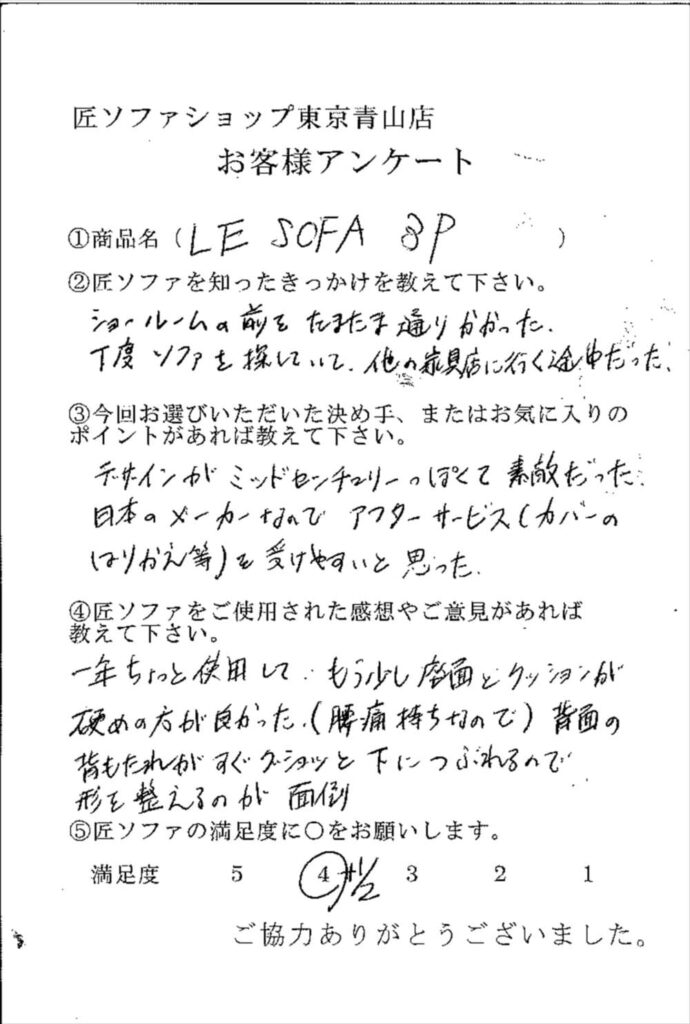 匠ソファショップ東京青山店
お客様アンケート
①商品名（LE SOFA 3P）
②匠ソファを知ったきっかけを教えて下さい。
ショールームの前をたまたま通りかかった。
丁度ソファを探していて、他の家具店に行く途中だった。
③今回お選びいただいた決め手、またはお気に入りの
ポイントがあれば教えて下さい。
デザインがミッドセンチュリーっぽくて素敵だった。
日本のメーカーなのでアフターサービス（カバーの
はりかえ等）を受けやすいと思った。
④匠ソファをご使用された感想やご意見があれば
教えて下さい。
一年ちょっと使用して、もう少し座面とクッションが
硬めの方が良かった。（腰痛持ちなので）背面の
背もたれがすぐグシャッと下につぶれるので
形を整えるのが面倒
⑤匠ソファの満足度に〇をお願いします。
満足度 5 4 1/2 3 2 1
ご協力ありがとうございました。